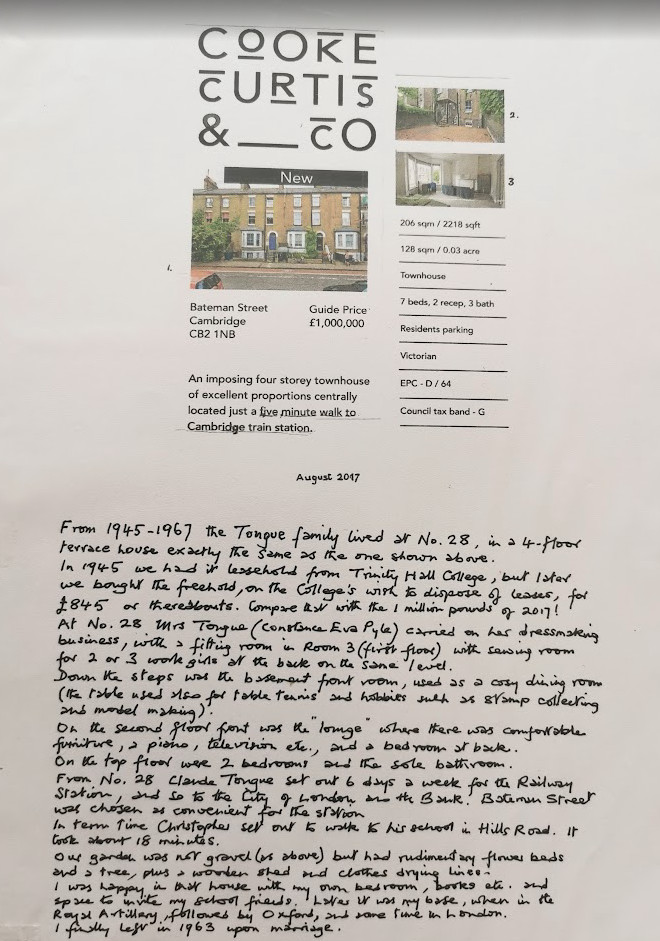 COOKE
CURTIS
& CO
New
1.
Bateman Street
Cambridge
CB2 1NB
Guide Price
£1,000,000
An imposing four storey townhouse
of excellent proportions centrally
located just a five minute walk to
Cambridge train station.
2.
3
206 sqm / 2218 sqft
128 sqm / 0.03 acre
Townhouse
7 beds, 2 recep, 3 bath
Residents parking
Victorian
EPC - D / 64
Council tax band - G
August 2017
From 1945-1967 the Tongue family lived at No. 28, in a 4-floor
terrace house exactly the same as the one shown above.
In 1945 we had it leasehold from Trinity Hall College, but later
we bought the freehold, on the College's wish to dispose of leases, for
£845 or thereabouts. Compare that with the 1 million pounds of 2017!
At No. 28 Mrs Tongue (Constance Eva Pyle) carried on her dressmaking
business, with a fitting room in Room 3 (first floor) with sewing room
for 2 or 3 work girls at the back on the same level.
Down the steps was the basement front room, used as a cosy dining room
(the table used also for table tennis and hobbies such as stamp collecting
and model making).
On the second floor front was the "lounge" where there was comfortable
furniture, a piano, television etc., and a bedroom at back.
On the top floor were 2 bedrooms and the sole bathroom.
From No. 28 Claude Tongue set out 6 days a week for the Railway
Station, and so to the City of London and the Bank. Bateman Street
was chosen as convenient for the station
In term time Christopher set out to walk to his school in Hills Road. It
took about 18 minutes.
Our garden was not gravel (as above) but had rudimentary flower beds
and a tree, plus a wooden shed and clothes drying lines.
I was happy in that house with my own bedroom, books etc. and
space to invite my school friends. Later it was my base, when in the
Royal Artillery, followed by Oxford, and some time in London.
I finally left in 1963 upon marriage.